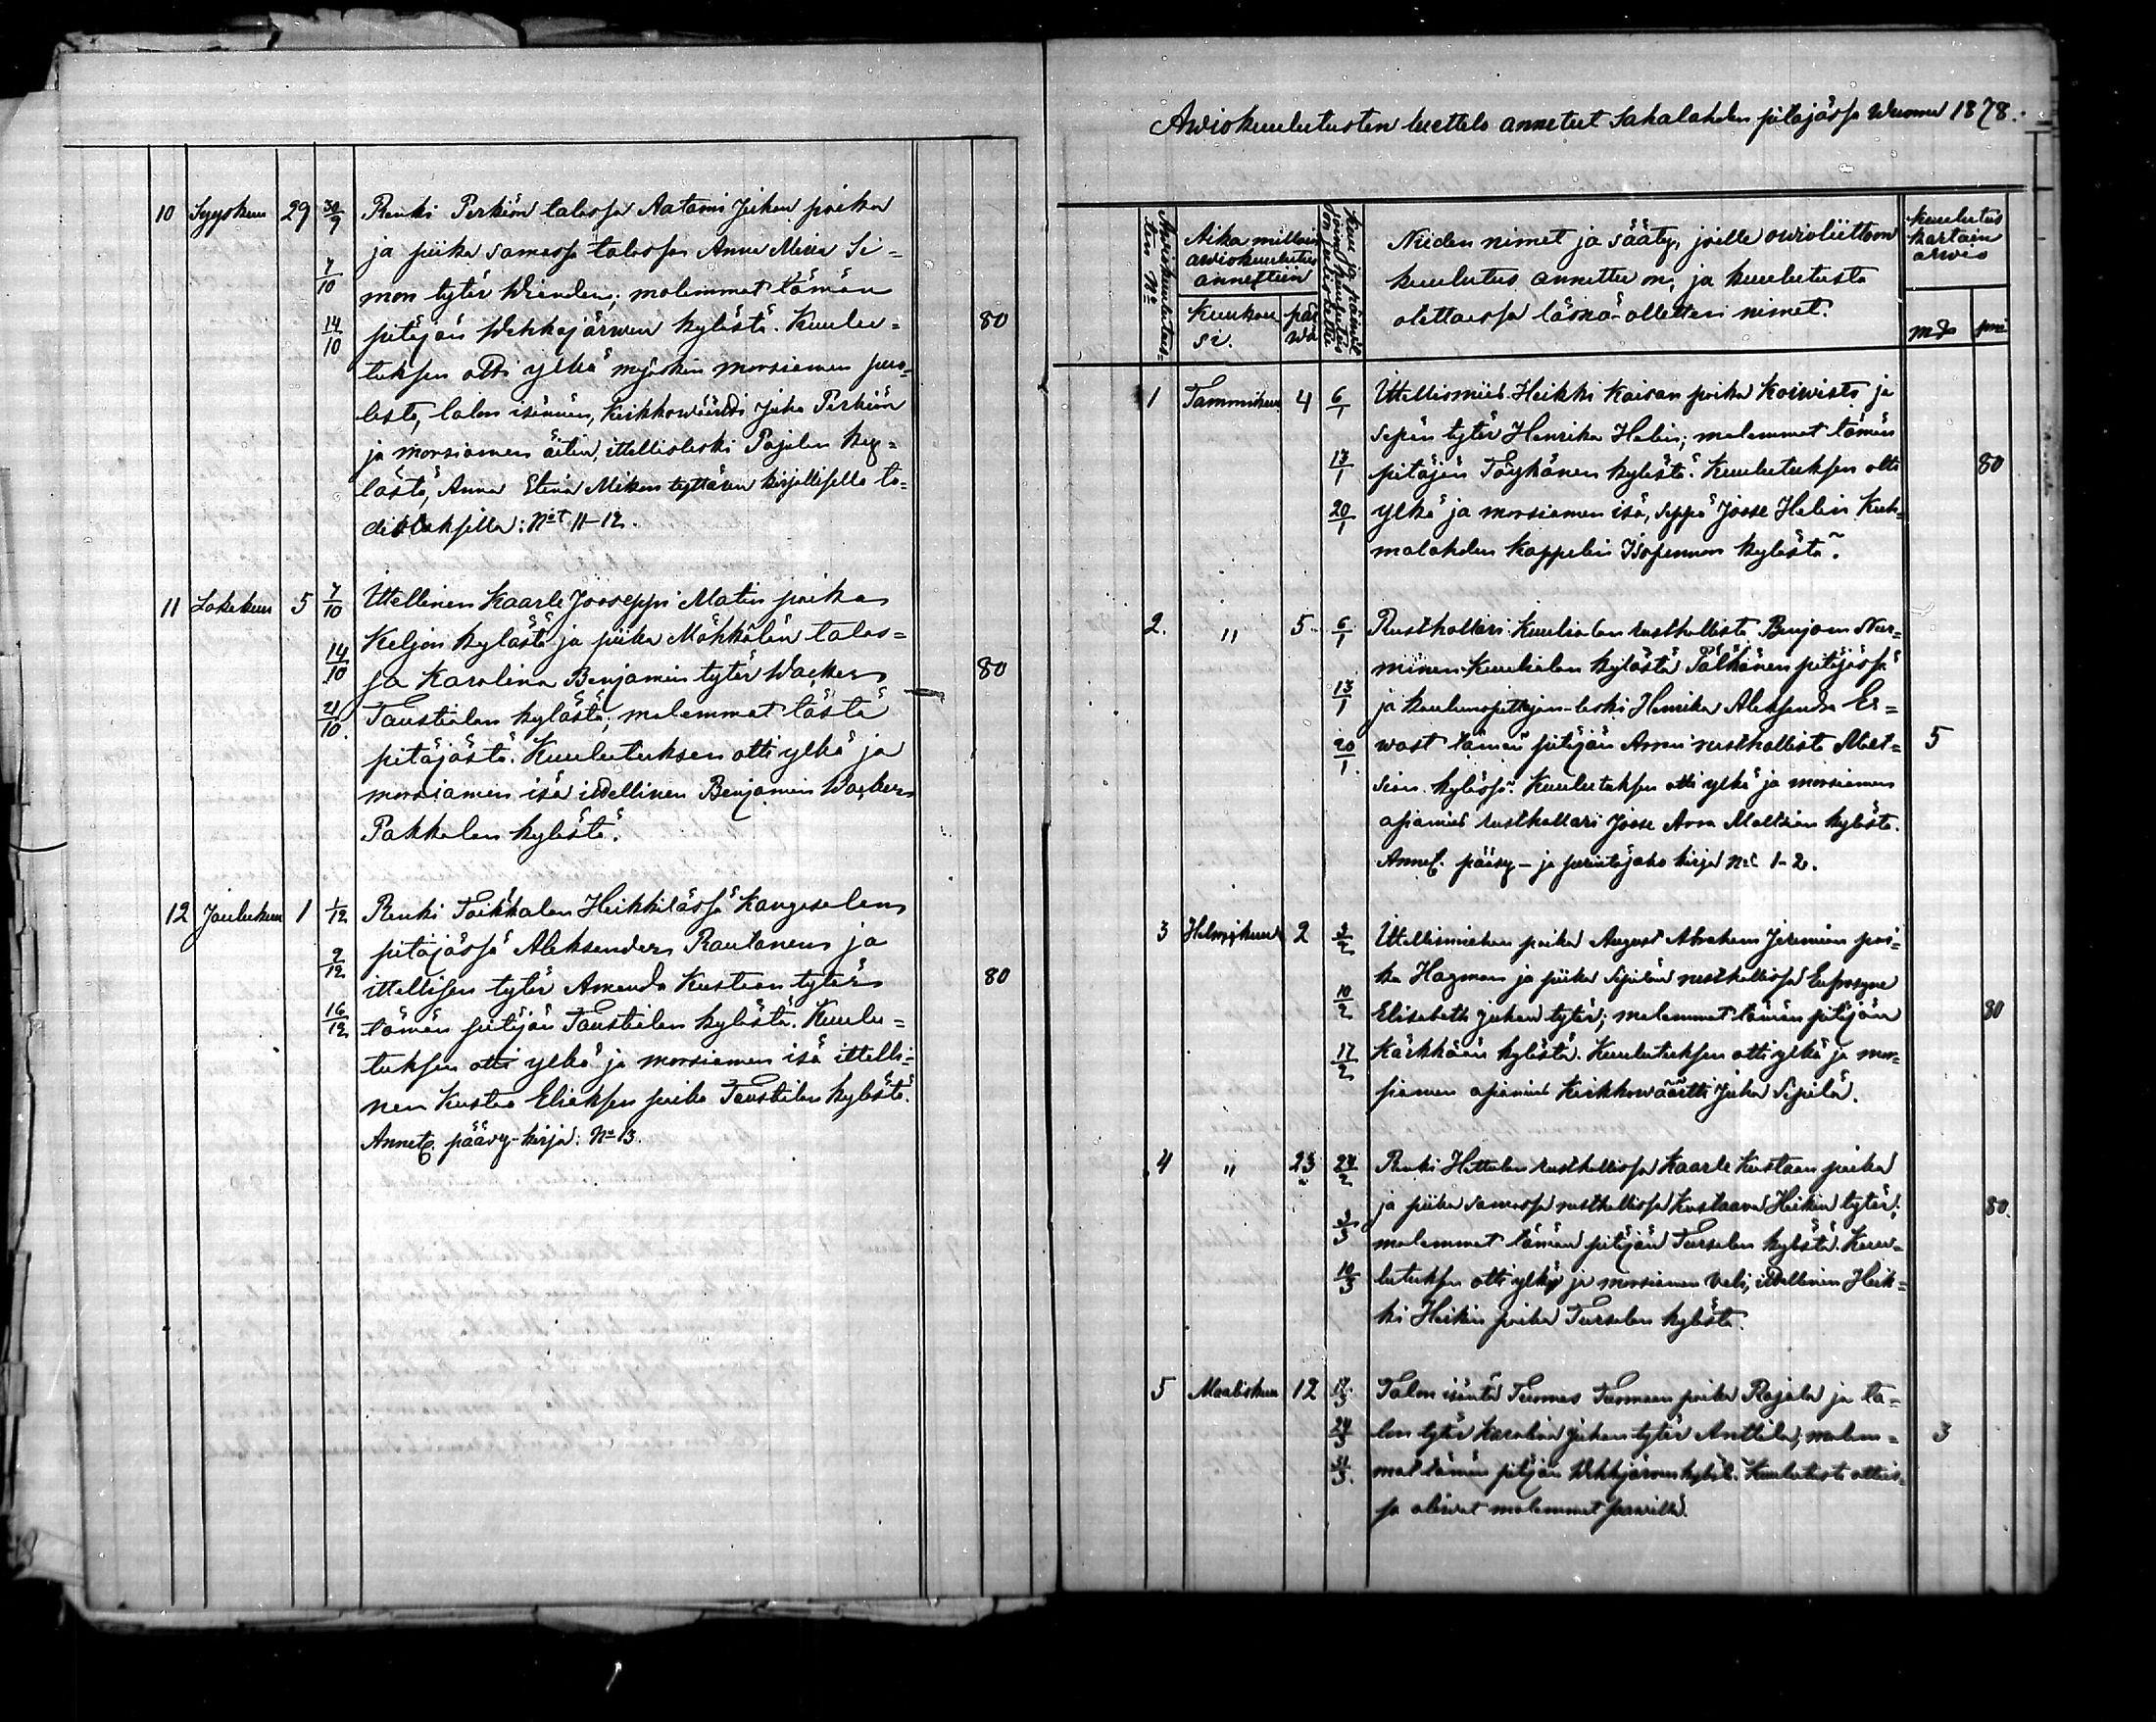 10 Syyskuu 29 30/9 Renki Perkiön talossa Aatami Juhan poika
ja piika samassa talossa Anna Miina Si=
7/10
mon tytär ; molemmat tämän
14/10 pitäjän Wehkajärwen kylästä. Kuulu= 80
tuksen otti ylkä myöskin morsiamen puo=
lesta, talon isännän, Kirkkowäärti Juha Perkiön
ja morsiamen äitin, ittellisleski Pajulan ky=
lästä, Anna Stina Mikon tyttären kirjallisella to=
distuksella: No 11-12.
11 Lokakuu 5 7/10 Ittellinen Kaarle Jooseppi Matin poika
Keljon kylästä ja piika Mähkälän talos=
14/10
sa Karolina Benjamin tytär Wacker 80
21/10. Taustialan kylästä; molemmat tästä
pitäjästä. Kuulutuksen otti ylkä ja
morsiamen isä ittellinen Benjamin Wacker
Pakkalan kylästä.
12 Joulukuu 1 1/12 Renki Toikkalan Heikkilässä Kangasalan
pitäjässä Aleksander Rautanen ja
9/12
ittellisen tytär Amanda Kustaan tytär 80
16/12 tämän pitäjän Taustialan kylästä. Kuulu=
tuksen otti ylkä ja morsiamen isä ittelli=
nen Kustaa Eliaksen poika Taustialan kylästä.
Annet. päävy-kirja: No 13.
Awiokuulutusten luettelo annetut Sahalahden pitäjässä wuonna 1878.
Awiokuulutus=
ten No
Aika milloin
awiokuulutus
annettiin
Kuukau
si.
päi
wä
Niiden nimet ja sääty, joille awioliittoon
kuulutus annettu on, ja kuulutusta
otettaessa läsnä-olletten nimet.
Kuulutus
kartain
arwo
mk pni
1 Tammikuu 4 6/1 Ittellismies Heikki Kaisan poika Koiwisto ja
sepän tytär Henrika Helin; molemmat tämän
13/1 pitäjän Töykänen kylästä. Kuulutuksen otti 80
20/1 ylkä ja morsiamen isä, seppä Joose Helin Kuh=
malahden Kappelin Isopennon kylästä.
2. " 5. 6/1 Rusthollari Kuulialan rusthollista Benjam Nur=
minen Kuulialan kylästä Pälkäneen pitäjässä
13/1 ja leski Henrika Aleksandra
20/1. tämän pitäjän rusthollista Molt= 5
sian kylässä. Kuulutuksen otti ylkä ja morsiamen
asiamies rusthollari Joose Moltsian kylästä.
Annet. pääsy- ja perintöjako kirja No 1-2.
3 Helmikuu 2 3/2 Ittellismiehen poika August Abraham Jeremian poi=
ka Hagman ja piika Sipilän rusthollissa Eufrosyne
10/2 Elisabeth Juhan tytär; molemmat tämän pitäjän 80
17/2 kylästä. Kuulutuksen otti ylkä ja mor=
siamen asiamies Kirkkowäärtti Juha Sipilä.
4 " 23 24/2 Renki rusthollissa Kaarle Kustaan poika
ja piika samassa rusthollissa Kustaava Heikin tytär; 80.
3/3 molemmat tämän pitäjän Tursolan kylästä. Kuu=
10/3 lutuksen otti ylkä ja morsiamen veli, ittellinen Heik=
ki Heikin poika Tursolan kylästä.
5 Maaliskuu 12 17/3 Talon isäntä Tuomas Tuomaan poika Rajala ja ta=
24/3 lon tytär Karolina Juhan tytär Anttila; molem= 3
31/3. mat tämän pitäjän Wehkajärwen kyläs. Kuulutusta ottaes=
sa oliwat molemmat saapuwilla.